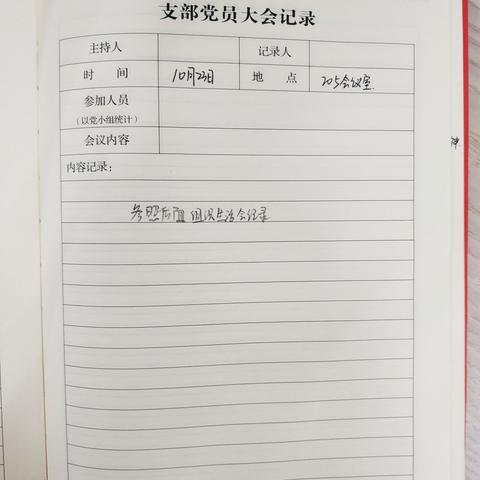 支部党员大会记录
主持人 记录人
时 间 10月23日 地 点 205会议室
参加人员
（以党小组统计）
会议内容
内容记录：
参照后面组织生活会记录